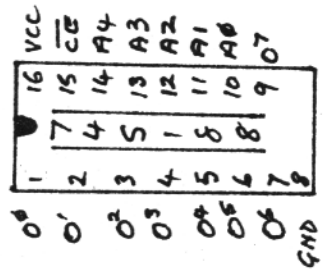 VCC CE A4 A3 A2 A1 A0 O7
16 15 14 13 12 11 10 9
74S188
1 2 3 4 5 6 7 8
O0 O1 O2 O3 O4 O5 O6 GND